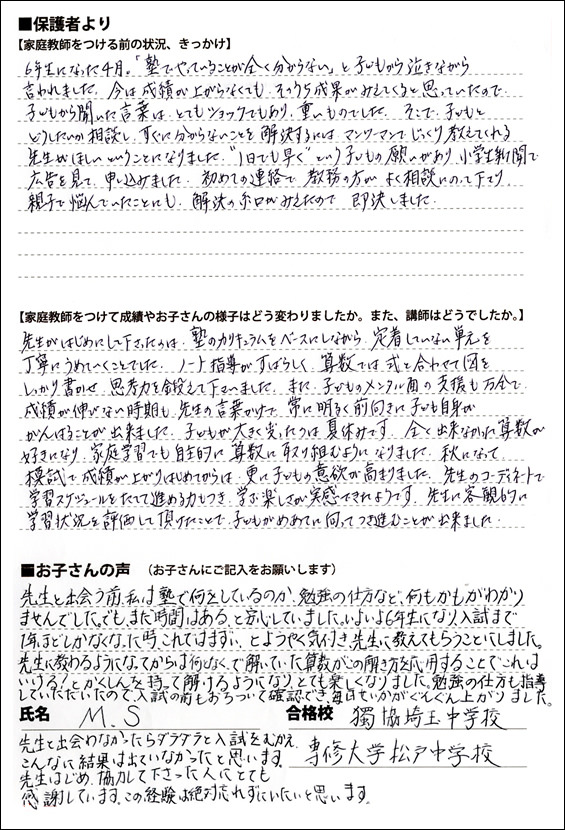 ■保護者より
【家庭教師をつける前の状況、きっかけ】
6年生になった4月。「塾でやっていることが全く分からない」と子どもから泣きながら
言われました。今は成績が上がらなくても、そのうち成果がみえてくると思っていたので
子どもから聞いた言葉は、とてもショックでもあり、重いものでした。そこで、子どもと
どうしたいか相談し、すぐに分からないことを解決するには、マンツーマンでじっくり教えてくれる
先生がほしいということになりました。"1日でも早く"という子どもの願いがあり、小学生新聞で
広告を見て、申し込みました。初めての連絡で、教務の方がよく相談にのって下さり
親子で悩んでいたことにも、解決の糸口がみえたので、即決しました。
【家庭教師をつけて成績やお子さんの様子はどう変わりましたか。また、講師はどうでしたか。】
先生がはじめにして下さったのは、塾のカリキュラムをベースにしながら、定着していない単元を
丁寧にうめていくことでした。ノート指導がすばらしく、算数では式と合わせて図を
しっかり書かせ、思考力を鍛えて下さいました。また、子どものメンタル面の支援も万全で
成績が伸びない時期も、先生の言葉かけで、常に明るく前向きに子ども自身が
がんばることが出来ました。子どもが大きく変ったのは夏休みです。全く出来なかった算数が
好きになり、家庭学習でも自主的に算数に取り組むようになりました。秋になって
模試で成績が上がりはじめてからは、更に子どもの意欲が高まりました。先生のコーディネートで
学習スケジュールをたてて進める力もつき、学ぶ楽しさが実感できたようです。先生に客観的に
学習状況を評価して頂けたことで、子どもがめあてに向ってつき進むことが出来ました。
■お子さんの声 （お子さんにご記入をお願いします）
先生と出会う前、私は塾で何をしているのか、勉強の仕方など、何もかもがわかり
ませんでした。でも、まだ時間はある、と安心していました。いよいよ6年生になり入試まで
1年ほどしかなくなった時、これではまずい、とようやく気付き、先生に教えてもらうことにしました。
先生に教わるようになってからは何となくで解いていた算数がこの解き方を応用することでこれは
いける！とかくしんを持って解けるようになり、とても楽しくなりました。勉強の仕方も指導
していただいたので、入試の前もおちついて確認でき、毎日せいかがぐんぐん上がりました。
氏名 M.S 合格校 獨協埼玉中学校
先生と出会わなかったらダラダラと入試をむかえ 専修大学松戸中学校
こんなに結果は出ていなかったと思います。
先生はじめ、協力して下さった人にとても
感謝しています。この経験は絶対忘れずにいたいと思います。